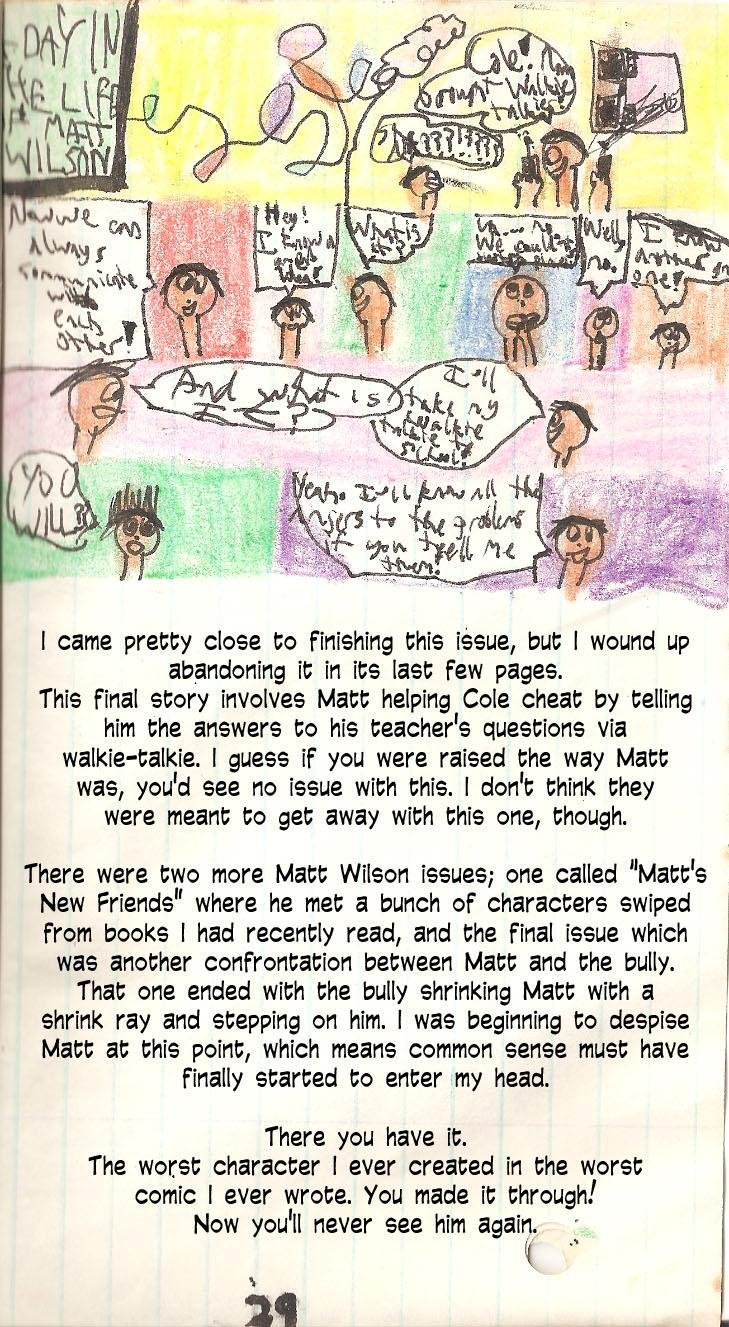 DAY IN
HE LIFE
F MATT
WILSON
Cole! Mom
bought Walkie
talkies!
Now we can
always
communicate
with
each
other!
Hey!
I know a
idea!
What is
it?
no.
We could
Well,
no.
I know
another
one!
And what is
it?
I'll
take my
walkie
talkie to
school!
YOU
WILL?
Yeah. I'll know all the
to the problems
if you tell me
them!
I came pretty close to finishing this issue, but I wound up
abandoning it in its last few pages.
This final story involves Matt helping Cole cheat by telling
him the answers to his teacher's questions via
walkie-talkie. I guess if you were raised the way Matt
was, you'd see no issue with this. I don't think they
were meant to get away with this one, though.
There were two more Matt Wilson issues; one called "Matt's
New Friends" where he met a bunch of characters swiped
from books I had recently read, and the final issue which
was another confrontation between Matt and the bully.
That one ended with the bully shrinking Matt with a
shrink ray and stepping on him. I was beginning to despise
Matt at this point, which means common sense must have
finally started to enter my head.
There you have it.
The worst character I ever created in the worst
comic I ever wrote. You made it through!
Now you'll never see him again.
29